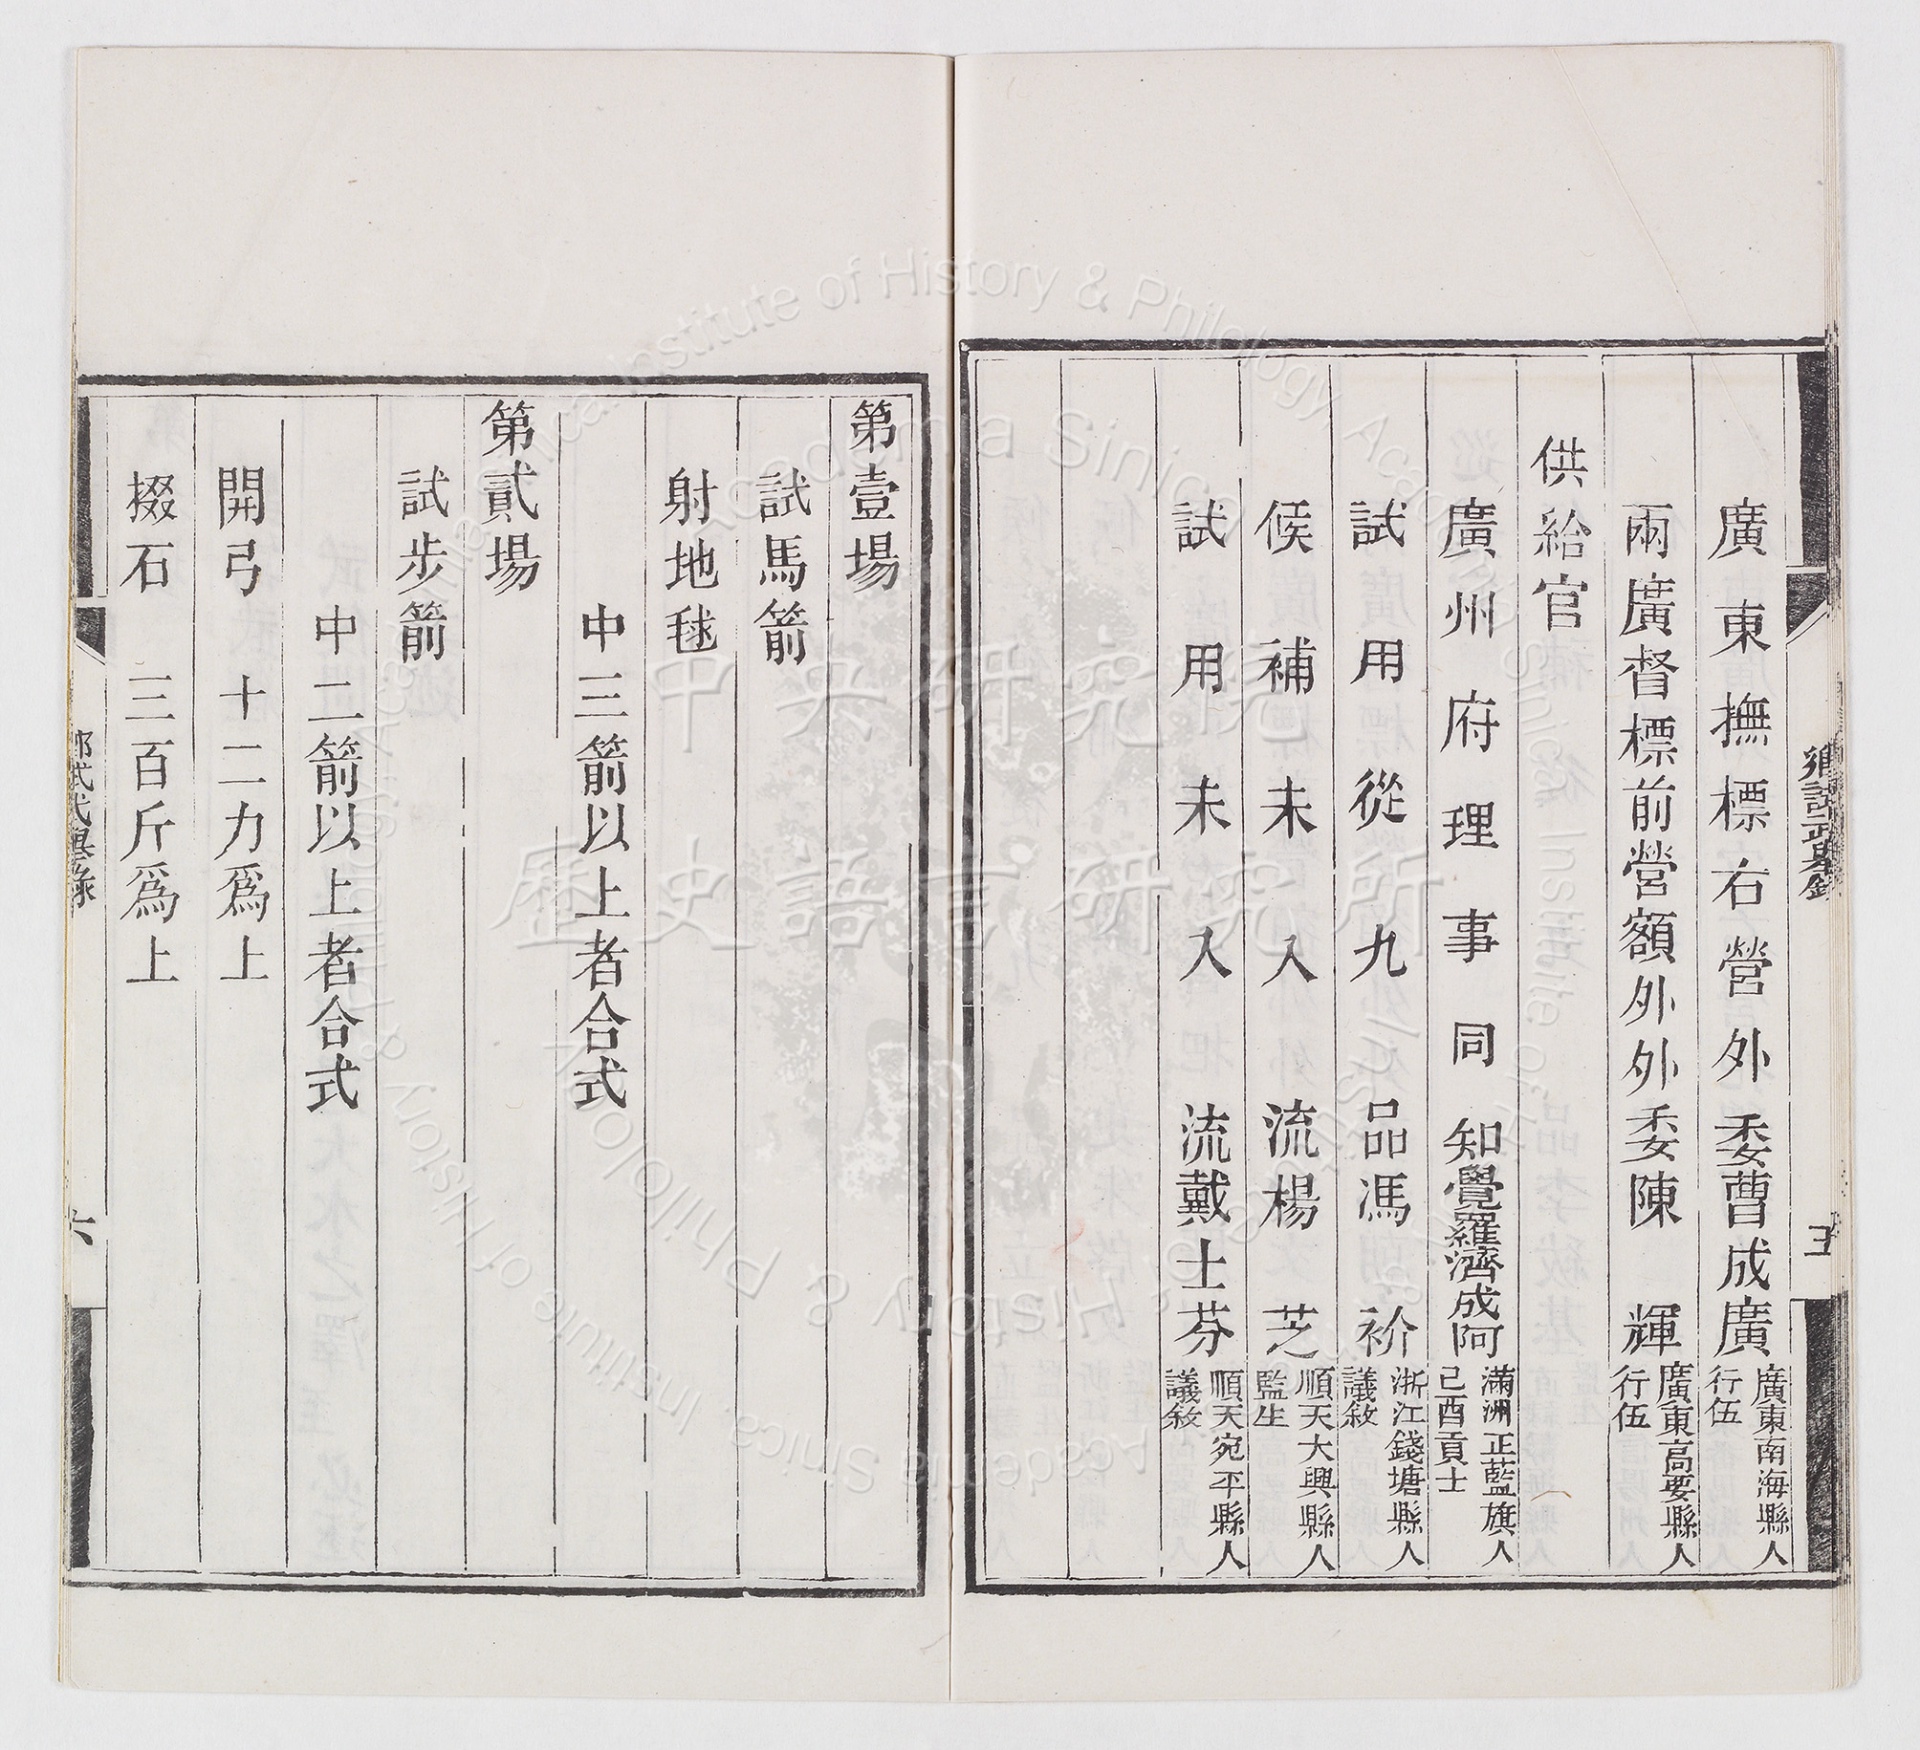 廣東撫標右營外委曹成廣 廣東南海縣人 行伍
兩廣督標前營額外外委陳輝 廣東高要縣人 行伍
供給官
廣州府理事同知覺羅濟成阿 滿洲正藍旗人 己酉貢士
試用從九品馮祄 浙江錢塘縣人 議敘
候補未入流楊芝 順天大興縣人 監生
試用未入流戴士芬 順天宛平縣人 議敘
第壹場
試馬箭
射地毬
中三箭以上者合式
第貳場
試步箭
中二箭以上者合式
開弓 十二力爲上
掇石 三百斤爲上
六
中央研究院
歷史語言研究所
Institute of History & Philology, Academia Sinica